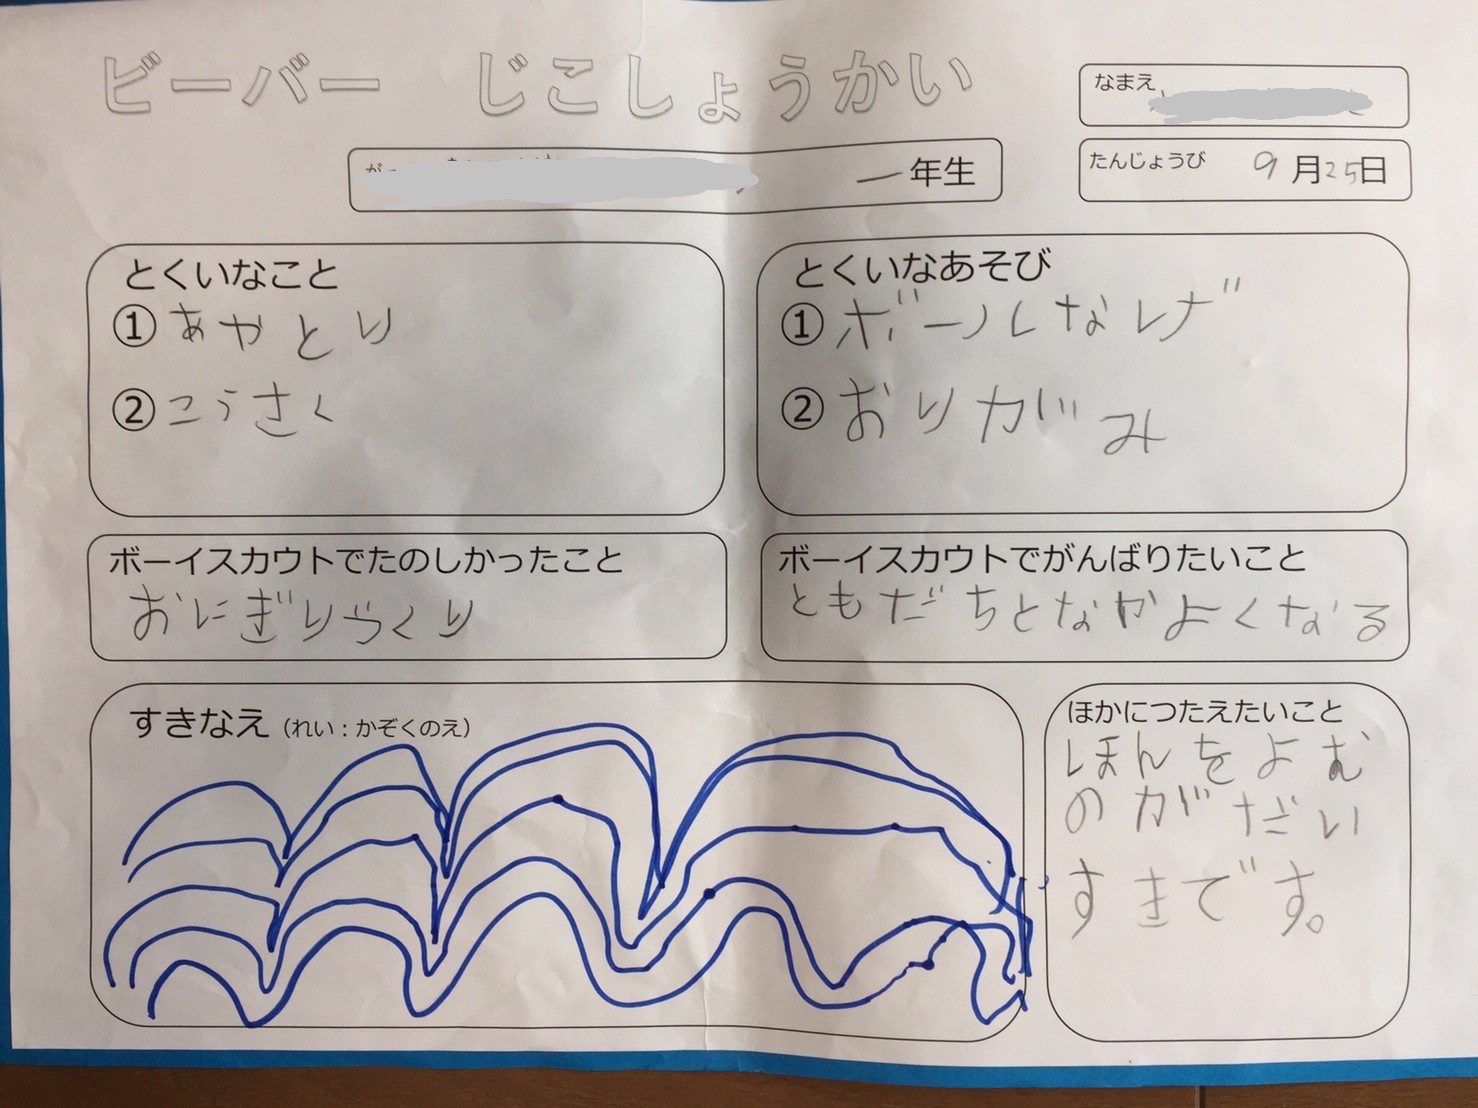 ビーバー じこしょうかい
なまえ
一年生
たんじょうび 9月25日
とくいなこと
①あやとり
②こうさく
とくいなあそび
①ボールなげ
②おりがみ
ボーイスカウトでたのしかったこと
おにぎりづくり
ボーイスカウトでがんばりたいこと
ともだちとなかよくなる
すきなえ（れい：かぞくのえ）
ほかにつたえたいこと
ほんをよむ
のがだい
すきです。